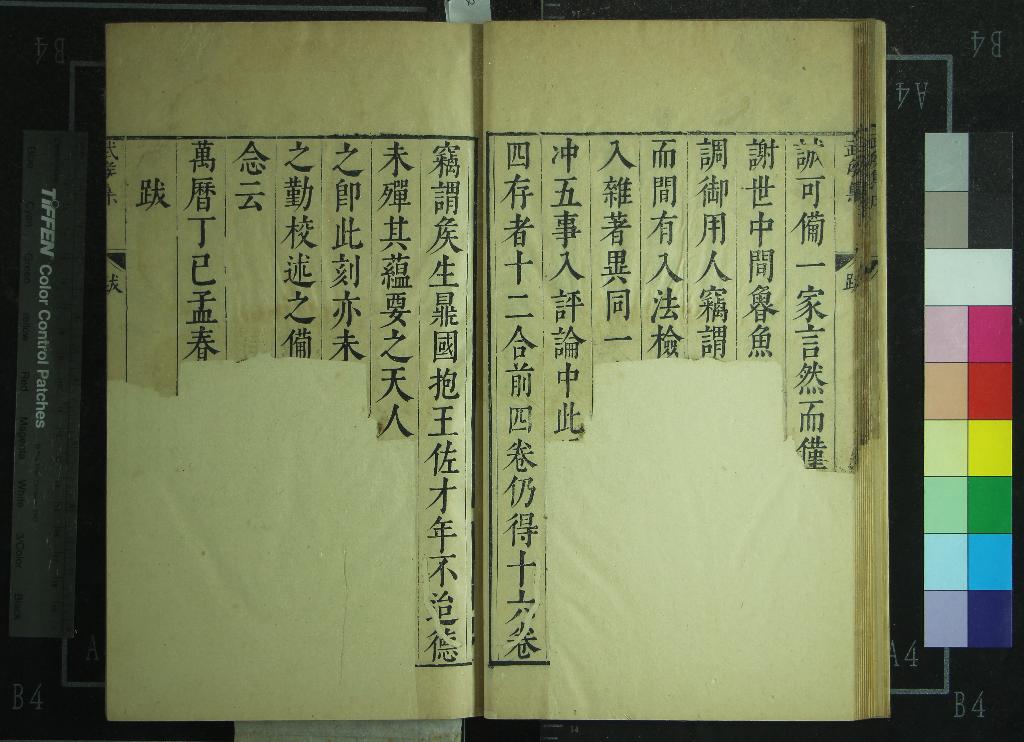 誠可備一家言然而僅
謝世中間魯魚
調御用人竊謂
而間有入法檢
入雜著異同一
冲五事入評論中此
四存者十二合前四卷仍得十六卷
竊謂矦生曩國抱王佐才年不迨德
未殫其蘊要之天人
之卽此刻亦未
之勤校述之備
念云
萬曆丁巳孟春
跋
跋
TIFFEN Color Control Patches
B4
A4
B4
A4
B4
B4